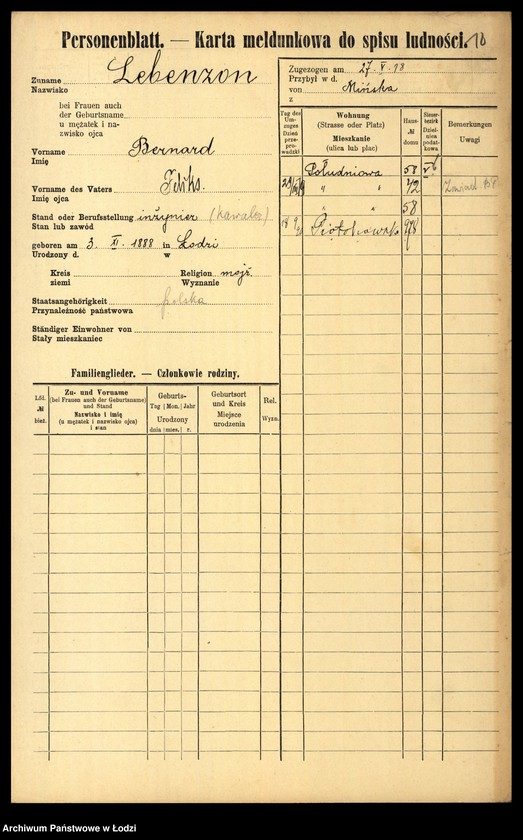 Personenblatt. — Karta meldunkowa do spisu ludności. 10
Zuname Lebenzon
Nazwisko
bei Frauen auch
der Geburtsname
u mężatek i na-
zwisko ojca
Vorname Bernard
Imię
Vorname des Vaters Feliks.
Imię ojca
Stand oder Berufsstellung inżynier (kawaler)
Stan lub zawód
geboren am 3. XI. 1888 in Łodzi
Urodzony d. w
Kreis Religion mojż.
ziemi Wyznanie
Staatsangehörigkeit polska
Przynależność państwowa
Ständiger Einwohner von
Stały mieszkaniec
Zugezogen am 27. V. 18
Przybył w d.
von Mińska
z
Tag des Um-
zugs
Dzień
prze-
prowadzki
Wohnung
(Strasse oder Platz)
Mieszkanie
(ulica lub plac)
Haus-
№
domu
Steuer-
bezirk
Dziel-
nica
podat-
kowa
Bemerkungen
Uwagi
Południowa 58
" " 42
" " 58
Piotrkowska
Familienglieder. — Członkowie rodziny.
Lfd.
№
bież.
Zu- und Vorname
(bei Frauen auch der Geburtsname)
und Stand
Nazwisko i imię
(u mężatek i nazwisko ojca)
i stan
Geburts-
Tag Mon. Jahr
Urodzony
dnia mies. r.
Geburtsort
und Kreis
Miejsce
urodzenia
Rel.
Wyzn.
Archiwum Państwowe w Łodzi